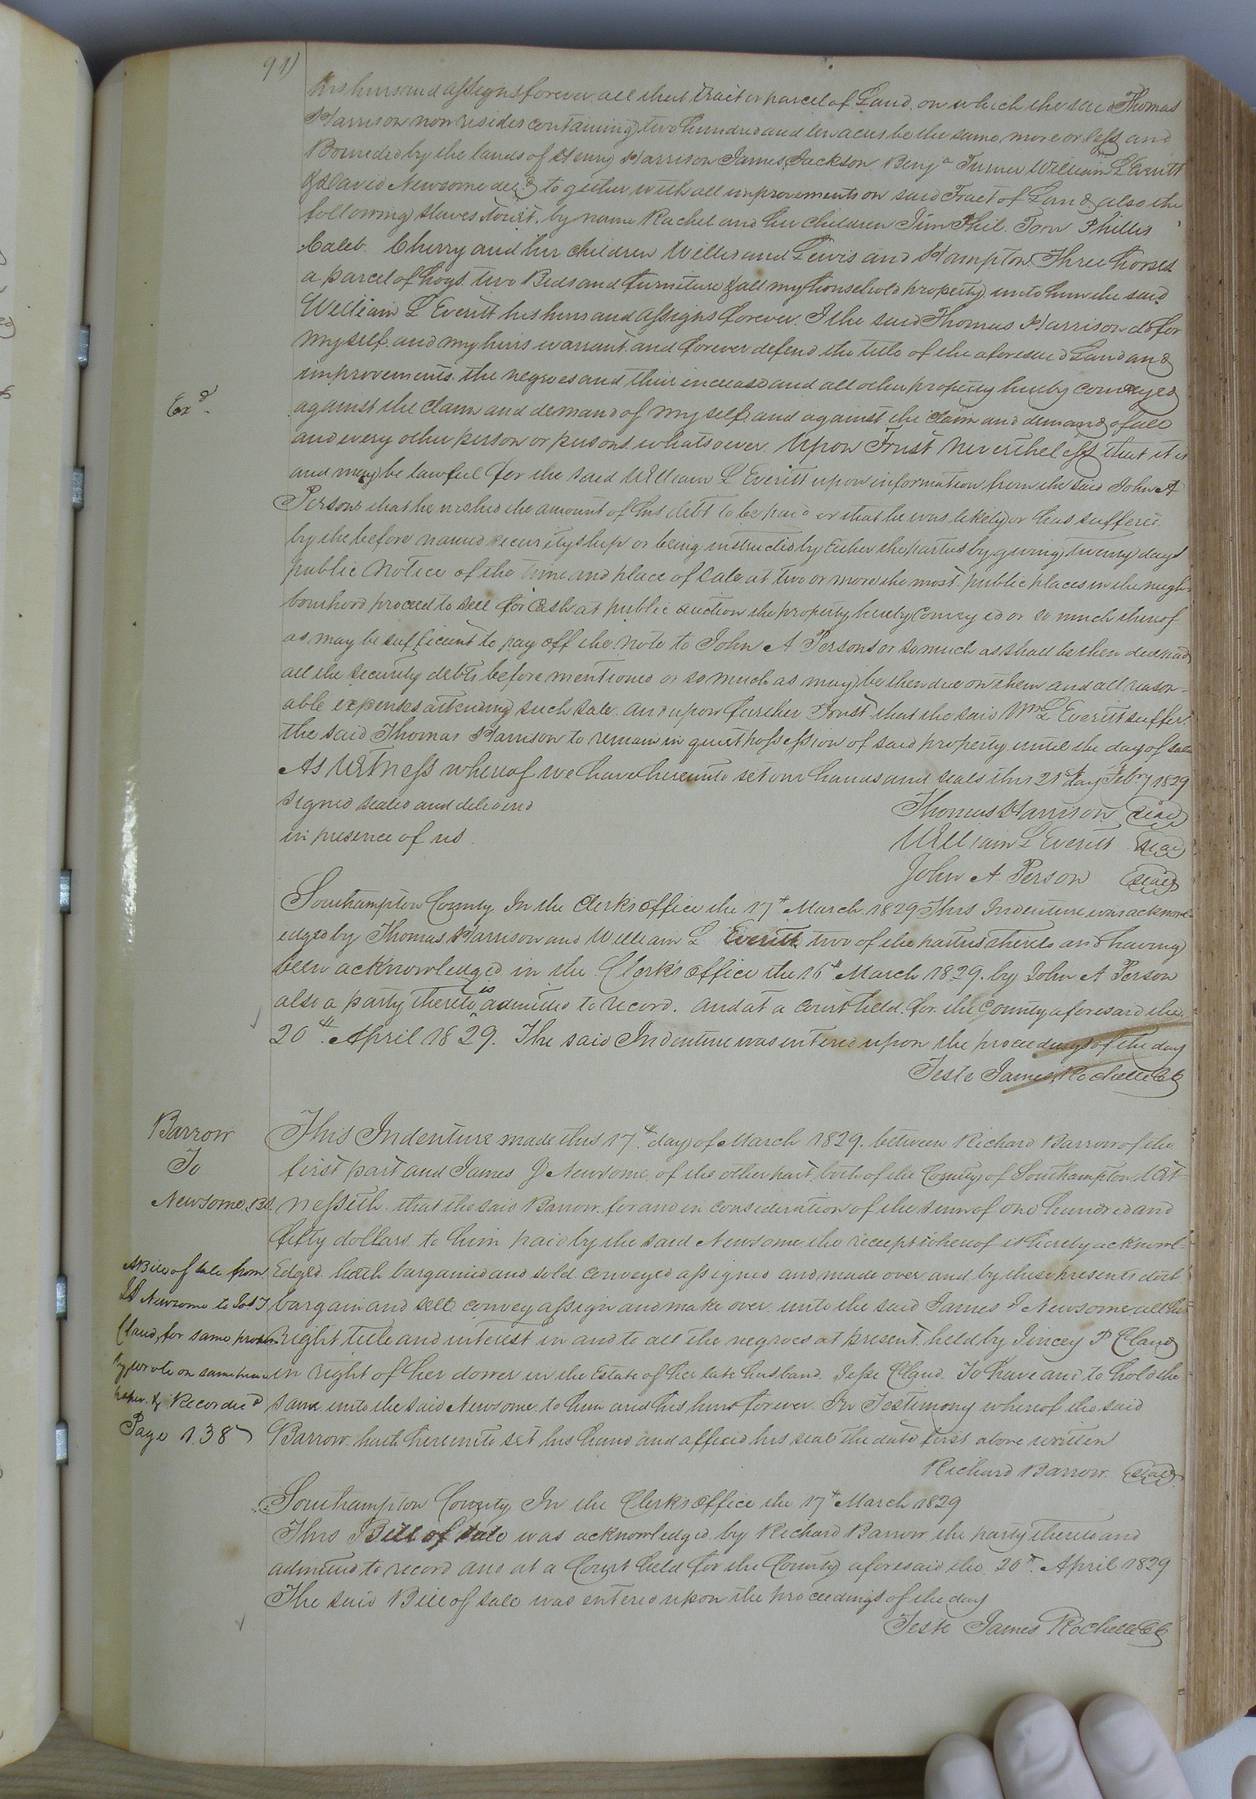 91)
his heirs and assigns forever all that tract or parcel of Land on which the said Thomas
Harrison now resides containing two hundred and ten acres be the same more or less and
Bounded by the lands of Henry Harrison James Jackson Benja Turner William L Everitt
& David Newsome decd together with all improvements on said Tract of Land & also the
following slaves towit, by name Rachel and her children Jim Phil Tom Phillis
Caleb Cherry and her children Willis and Lewis and Hampton Three horses
a parcel of hogs two Beds and furniture & all my household property unto him the said
William L Everitt his heirs and assigns forever. I the said Thomas Harrison do for
myself and my heirs warrant and forever defend the title of the aforesaid Land and
improvements the negroes and their increase and all other property hereby conveyed
Exd.
against the claim and demand of my self and against the claim and demand of all
and every other person or persons whatsoever. Upon Trust nevertheless that it is
and may be lawful for the said William L Everitt upon information from the said John A
Persons that he wished the amount of his debt to be paid or that he was likely or has suffered
by the before named securityship or being instructed by Either the parties by giving twenty days
public Notice of the time and place of Sale at two or more the most public places in the neigh-
bourhood proceed to sell for Cash at public auction the property hereby conveyed or so much thereof
as may be sufficient to pay off the note to John A Persons or so much as shall be then due and
all the security debts before mentioned or so much as may be then due on them and all reason-
able expenses attending such sale. And upon further Trust that the said Wm L Everitt suffer
the said Thomas Harrison to remain in quiet possession of said property until the day of sale
As Witness whereof we have hereunto set our hands and seals this 21st day Febry 1829
Signed sealed and delivered
Thomas Harrison (seal)
in presence of us
William L Everitt (seal)
John A Person (seal)
Southampton County In the Clerks Office the 17th March 1829 This Indenture was acknowl-
edged by Thomas Harrison and William L Everitt two of the parties thereto and having
been acknowledged in the Clerk's office the 16th March 1829. by John A Person
also a party thereto is admitted to record. and at a court held for the County aforesaid the
20th April 1829. The said Indenture was entered upon the proceedings of the day
Teste James Rochelle CC
Barrow
To
Newsome, Bd.
This Indenture made this 17th day of March 1829. between Richard Barrow of the
first part and James J Newsome, of the other part, both of the County of Southampton Wit-
nesseth that the said Barrow for and in consideration of the sum of one hundred and
fifty dollars to him paid by the said Newsome the receipt whereof is hereby acknowl-
Edged hath bargained and sold conveyed assigned and made over and by these presents doth
bargain and sell convey assign and make over unto the said James J Newsome all his
right title and interest in and to all the negroes at present held by Jincey P Claud
in right of her dower in the Estate of her late husband Jesse Claud. To have and to hold the
same unto the said Newsome to him and his heirs forever In Testimony whereof the said
Barrow hath hereunto set his hand and affixed his seal the date first above written
A Bill of sale from
Js Newsome to
Claud, for same proper-
ty, wrote on same
paper & Recorded
Page 138
Richard Barrow (seal)
Southampton County In the Clerks Office the 17th March 1829
This Bill of Sale was acknowledged by Richard Barrow the party thereto and
admitted to record and at a Court held for the County aforesaid the 20th April 1829
The said Bill of sale was entered upon the proceedings of the day
Teste James Rochelle CC